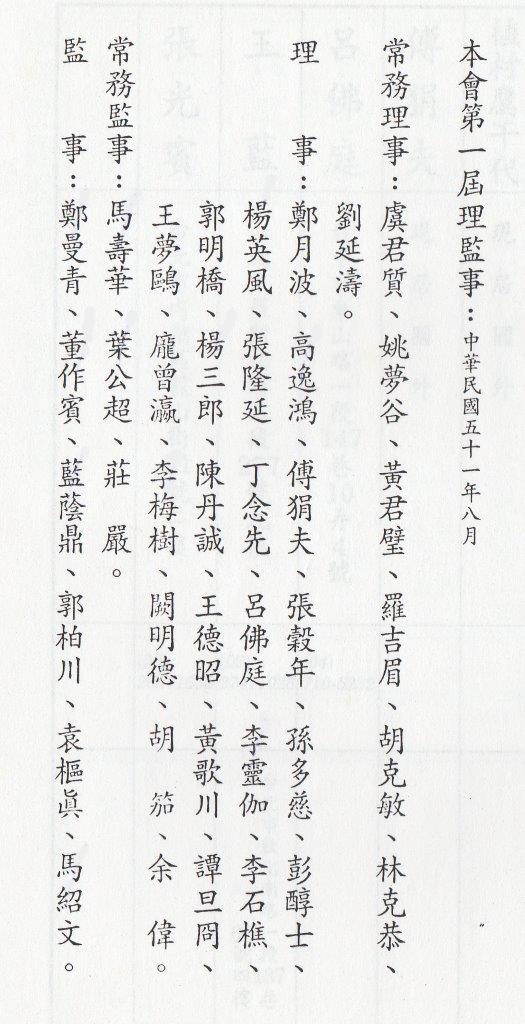 本會第一屆理監事：中華民國五十一年八月
常務理事：虞君質、姚夢谷、黃君璧、羅吉眉、胡克敏、林克恭、
劉延濤。
理　　事：鄭月波、高逸鴻、傅狷夫、張穀年、孫多慈、彭醇士、
楊英風、張隆延、丁念先、呂佛庭、李靈伽、李石樵、
郭明橋、楊三郎、陳丹誠、王德昭、黃歌川、譚旦冏、
王夢鷗、龐曾瀛、李梅樹、闕明德、胡　笳、余　偉。
常務監事：馬壽華、葉公超、莊　嚴。
監　　事：鄭曼青、董作賓、藍蔭鼎、郭柏川、袁樞眞、馬紹文。